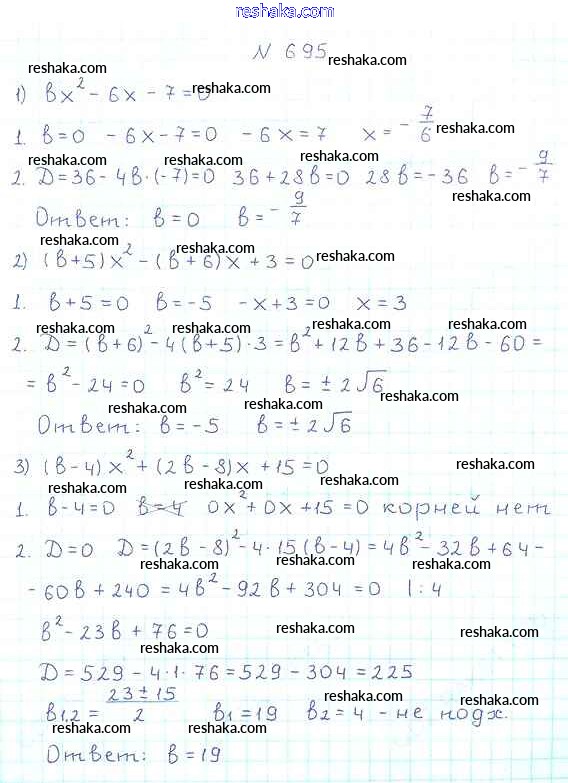 reshaka.com
N 695 reshaka.com
reshaka.com
1) вx² - 6x - 7 = 0 reshaka.com
1. в = 0 - 6x - 7 = 0 - 6x = 7 x = - 7/6 reshaka.com
reshaka.com reshaka.com reshaka.com
2. D = 36 - 4в·(-7) = 0 36 + 28в = 0 28в = -36 в = - 9/7
reshaka.com reshaka.com reshaka.com
Ответ: в = 0 в = - 9/7
reshaka.com reshaka.com
2) (в+5)x² - (в+6)x + 3 = 0 reshaka.com
1. в + 5 = 0 в = -5 -x + 3 = 0 x = 3
reshaka.com reshaka.com reshaka.com reshaka.com
2. D = (в+6)² - 4(в+5)·3 = в² + 12в + 36 - 12в - 60 =
= в² - 24 = 0 в² = 24 в = ± 2√6 reshaka.com
reshaka.com reshaka.com
Ответ: в = -5 в = ± 2√6
3) (в-4)x² + (2в-8)x + 15 = 0 reshaka.com
reshaka.com reshaka.com
1. в - 4 = 0 в = 4 0x² + 0x + 15 = 0 корней нет
reshaka.com reshaka.com
2. D = 0 D = (2в-8)² - 4·15(в-4) = 4в² - 32в + 64 -
reshaka.com reshaka.com
- 60в + 240 = 4в² - 92в + 304 = 0 | : 4
в² - 23в + 76 = 0 reshaka.com
reshaka.com
D = 529 - 4·1·76 = 529 - 304 = 225
reshaka.com
в1,2 = (23 ± 15)/2 в1 = 19 в2 = 4 - не подх.
reshaka.com reshaka.com reshaka.com
Ответ: в = 19